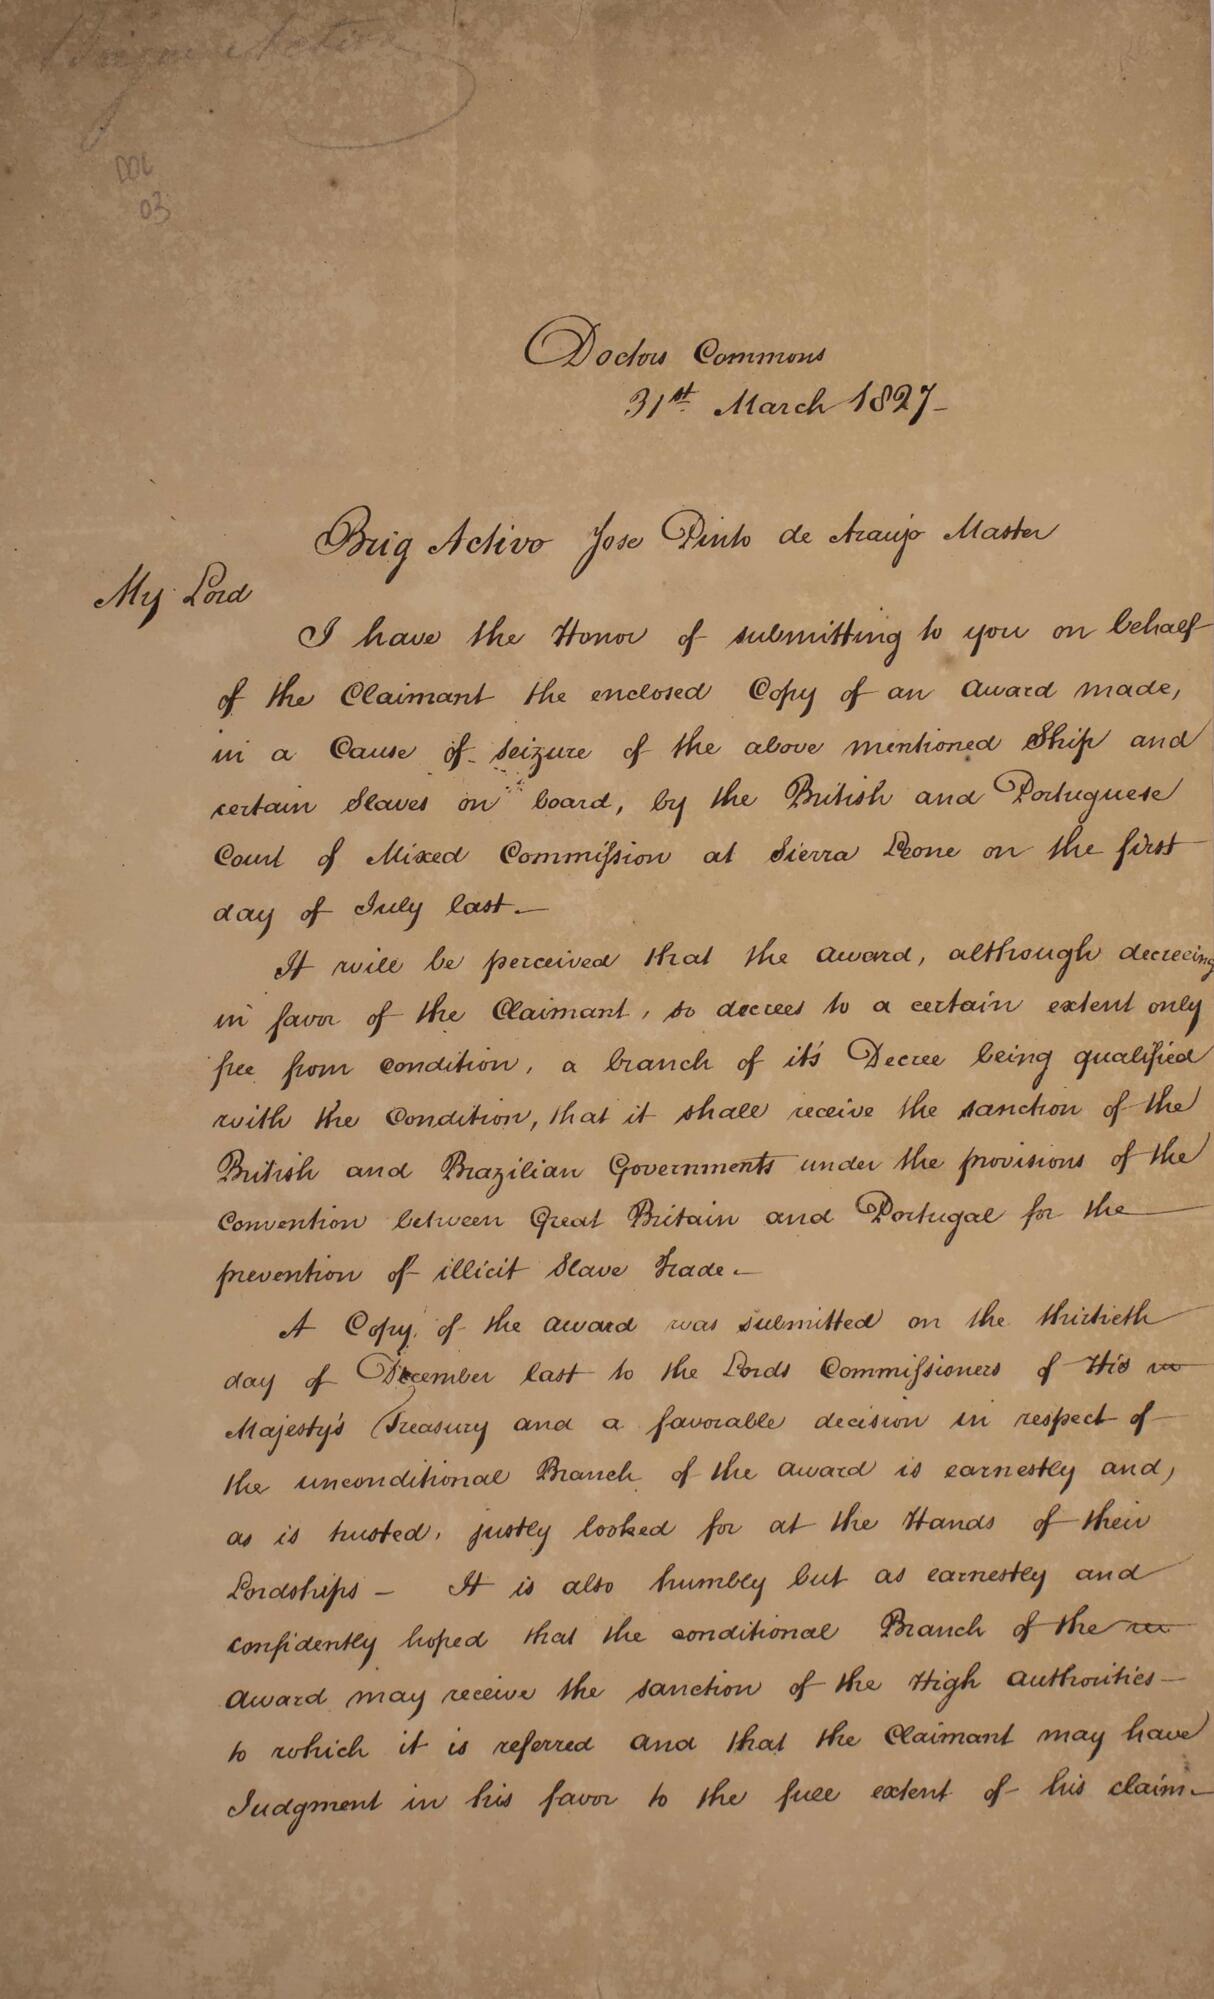 Brigue Activo
DOC
03
Doctors Commons
31st. March 1827-
Brig Activo Jose Pinto de Araujo Master
My Lord
I have the Honor of submitting to you on behalf
of the Claimant the enclosed Copy of an award made,
in a Cause of seizure of the above mentioned Ship and
certain Slaves on board, by the British and Portuguese
Court of Mixed Commission at Sierra Leone on the first
day of July last.-
It will be perceived that the award, although decreeing
in favor of the Claimant, so decrees to a certain extent only
free from condition, a branch of it's Decree being qualified
with the Condition, that it shall receive the sanction of the
British and Brazilian Governments under the provisions of the
Convention between Great Britain and Portugal for the
prevention of illicit Slave Trade.-
A Copy of the award was submitted on the thirtieth
day of December last to the Lords Commissioners of His
Majesty's Treasury and a favorable decision in respect of
the unconditional Branch of the award is earnestly and,
as is trusted, justly looked for at the Hands of their
Lordships - It is also humbly but as earnestly and
confidently hoped that the conditional Branch of the
award may receive the sanction of the High authorities-
to which it is referred and that the Claimant may have
Judgment in his favor to the full extent of his claim.-